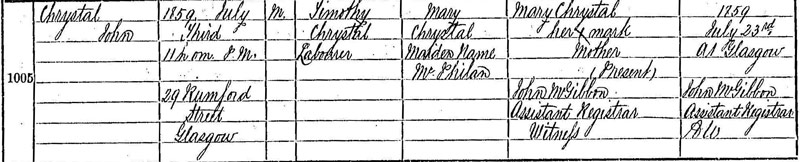 Chrystal
John
1005
1859, July
Third
11 h. 0 m. P.M.
29 Rumford
Street
Glasgow
M.
Timothy
Chrystal
Labourer
Mary
Chrystal
Maiden Name
Mc Philan
Mary Chrystal
her x mark
Mother
(Present)
John McGibbon
Assistant Registrar
Witness
1859
July 23rd
At Glasgow
John McGibbon
Assistant Registrar